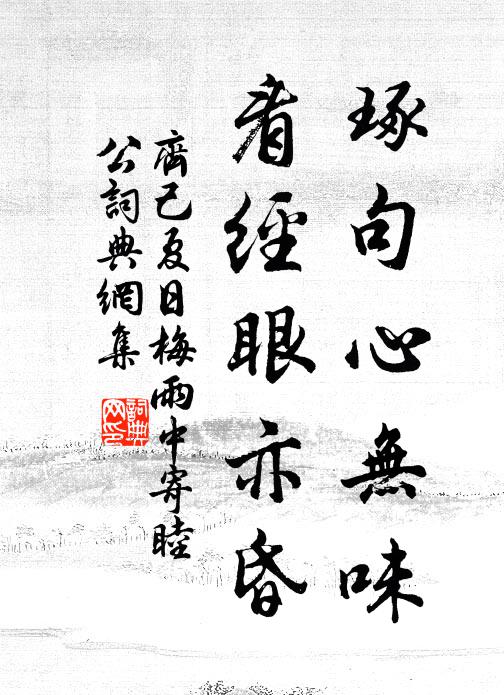 琢句心無味
看經眼亦昏
齊己夏日梅雨中寄睦
公詞典網集
詞典網印